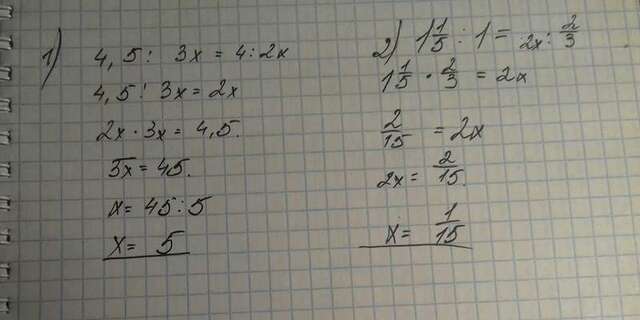 1)
4,5 : 3x = 4 : 2x
4,5 : 3x = 2x
2x · 3x = 4,5.
5x = 45.
x = 45 : 5
x = 5
2) 1 1/5 : 1 = 2x : 2/3
1 1/5 · 2/3 = 2x
2/15 = 2x
2x = 2/15.
x = 1/15